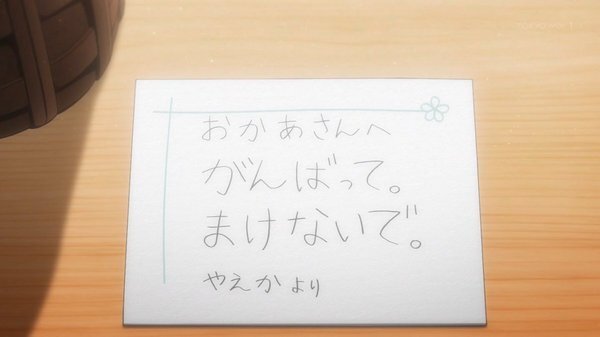 TOKYO MX 1
おかあさんへ
がんばって。
まけないで。
やえかより